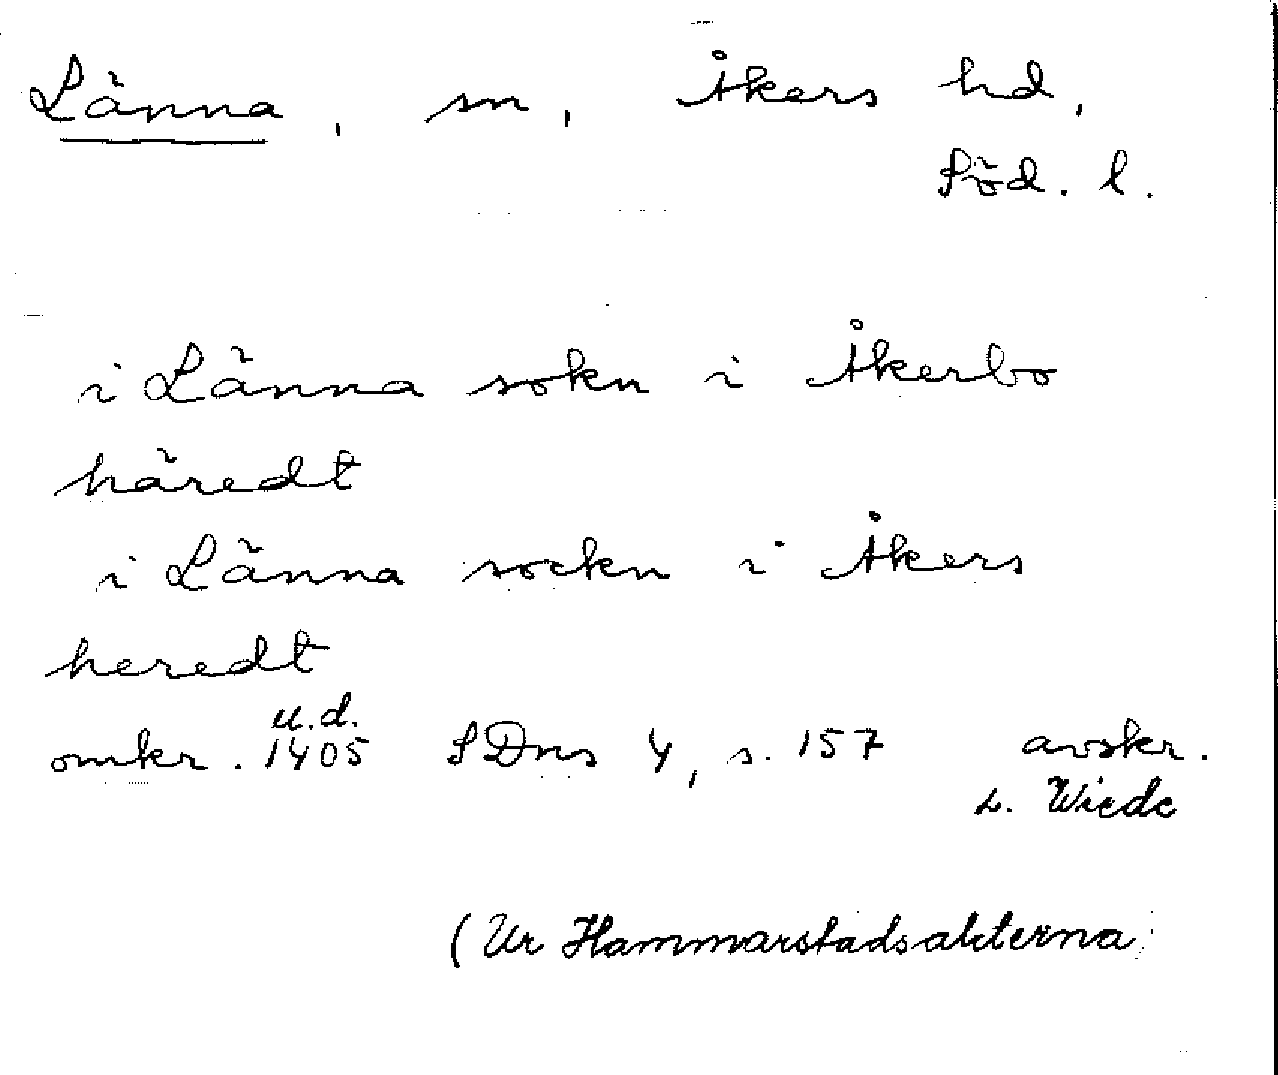 Länna, sn, Åkers hd,
Söd. l.
i Länna sokn i Åkerbo
häredt
i Länna sockn i Åkers
heredt
u.d.
omkr. 1405 SDns 4, s. 157 avskr.
L. Wiede
(Ur Hammarstadsakterna